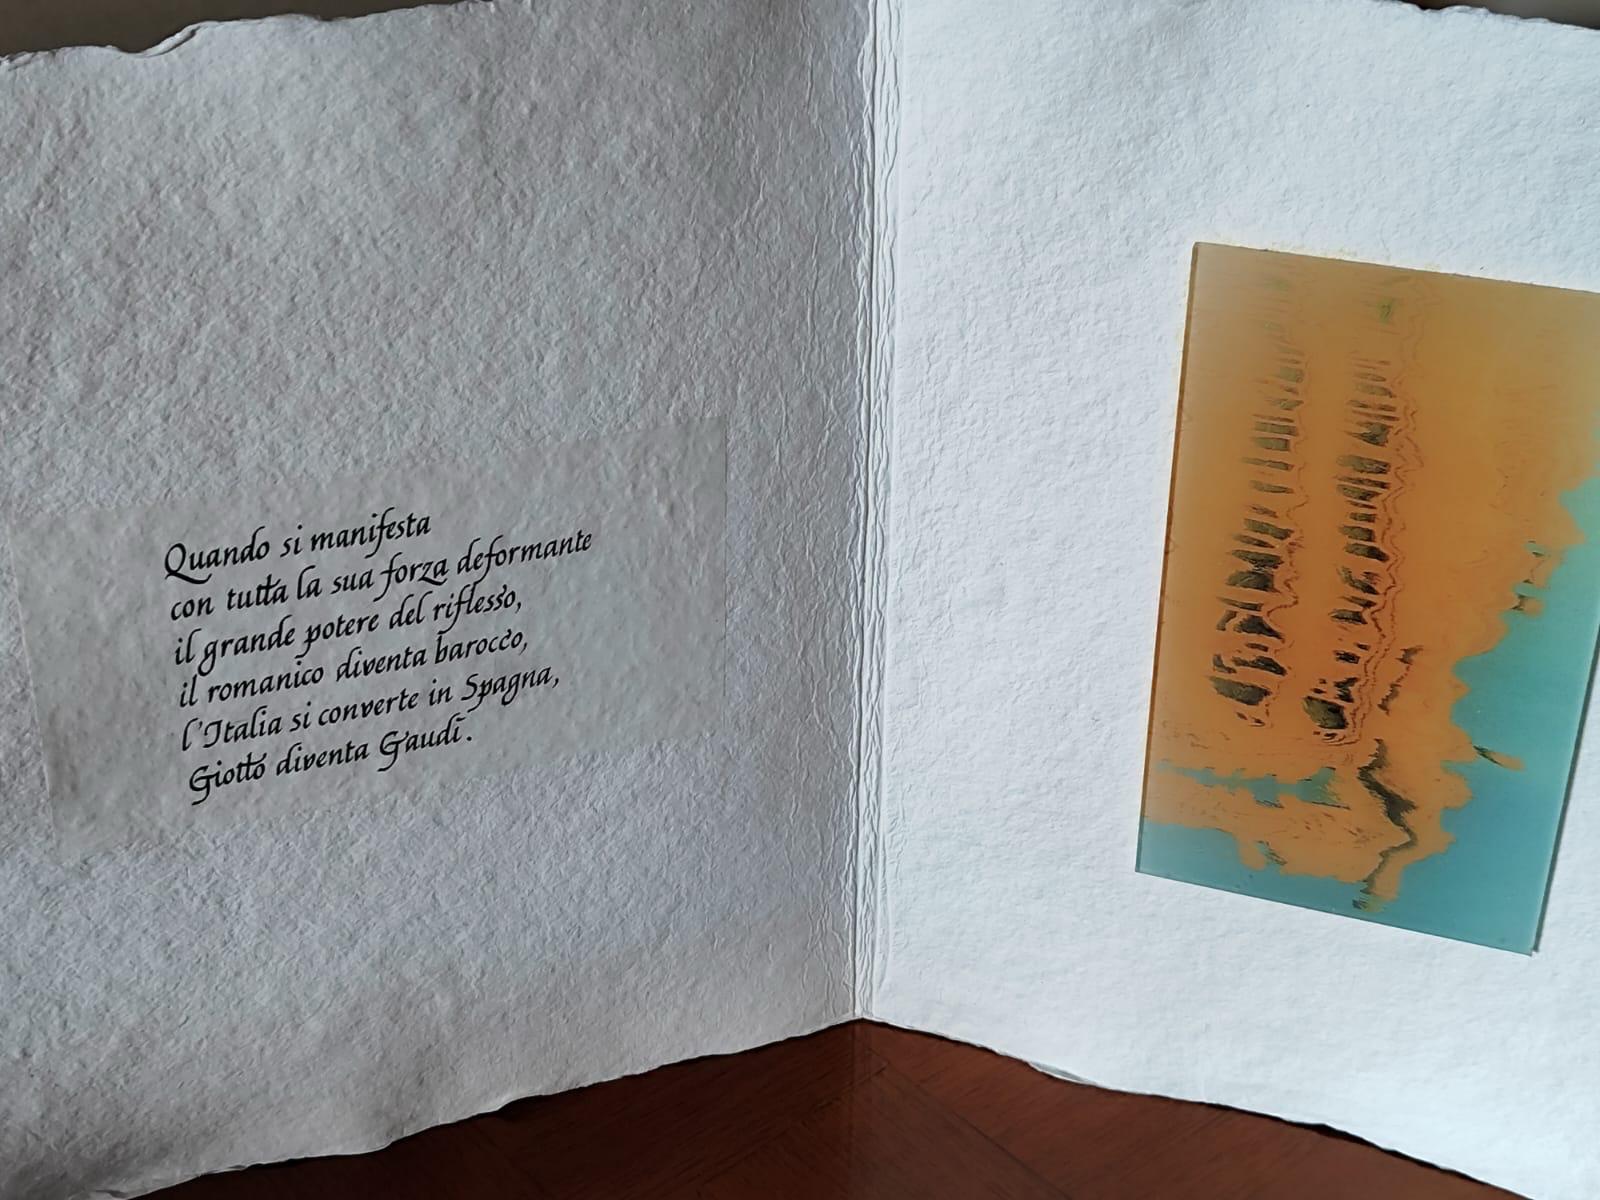 Quando si manifesta
con tutta la sua forza deformante
il grande potere del riflesso,
il romanico diventa barocco,
l'Italia si converte in Spagna,
Giotto diventa Gaudí.